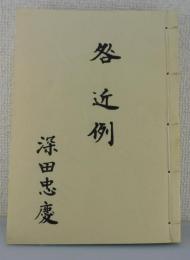 咎近例
深田忠慶